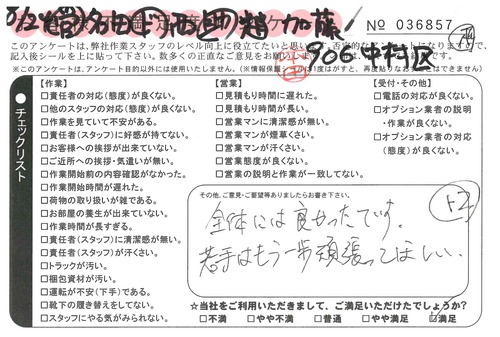 No 036857
このアンケートは、弊社作業スタッフのレベル向上に役立てたいと思い
記入後シールを上に貼って下さい。数多くの正直なご意見をお願い
※このアンケートは、アンケート目的以外には使用いたしません。
チェックリスト
【作業】
□責任者の対応(態度)が良くない。
□他のスタッフの対応(態度)が良くない。
□作業を見ていて不安がある。
□責任者(スタッフ)に好感が持てない。
□お客様への挨拶が出来ていない。
□ご近所への挨拶・気遣いが無い。
□作業開始前の内容確認がなかった。
□作業開始時間が遅れた。
□荷物の取り扱いが雑である。
□お部屋の養生が出来ていない。
□作業時間が長すぎる。
□責任者(スタッフ)に清潔感が無い。
□責任者(スタッフ)が汗くさい。
□トラックが汚い。
□梱包資材が汚い。
□運転が不安(下手)である。
□靴下の履き替えをしてない。
□スタッフにやる気がみられない。
【営業】
□見積もり時間に遅れた。
□見積もり時間が長い。
□営業マンに清潔感が無い。
□営業マンが煙草くさい。
□営業マンが汗くさい。
□営業態度が良くない。
□営業の説明と作業が一致してない。
【受付・その他】
□電話の対応が良くない。
□オプション業者の説明
・作業が良くない。
□オプション業者の対応
(態度)が良くない。
その他、ご意見・ご要望等ありましたらお書き下さい。
全体には良かったです。
若手はもう一歩頑張ってほしい。
☆当社をご利用いただきまして、ご満足いただけたでしょうか?
□不満 □やや不満 □普通 □やや満足 ☑満足